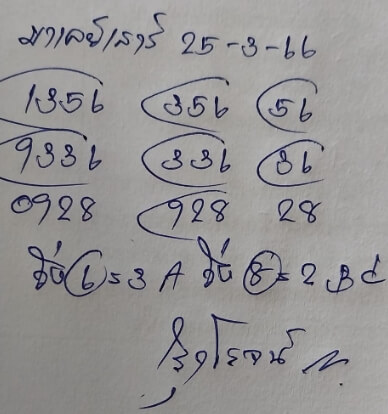 มาเลย์เสาร์ 25-3-66
1356 356 56
9336 336 36
0928 928 28
6 = 3 A 8 = 2 B C